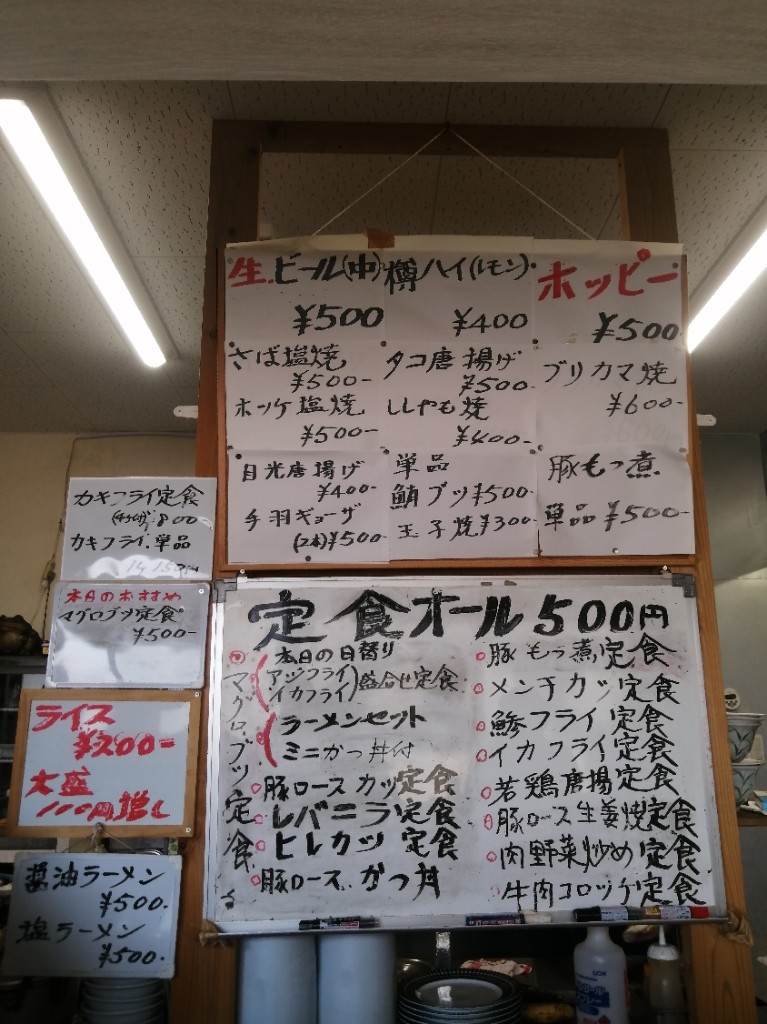 生ビール(中)
¥500
樽ハイ(レモン)
¥400
ホッピー
¥500
さば塩焼
¥500-
ホッケ塩焼
¥500-
タコ唐揚げ
¥500-
ししゃも焼
¥400-
ブリカマ焼
¥600-
目光唐揚げ
¥400-
手羽ギョーザ
(2本)¥500-
単品
鮪ブツ¥500-
玉子焼¥300-
豚もつ煮
単品¥500-
カキフライ定食
800
カキフライ.単品
本日のおすすめ
マグロブツ定食
¥500-
ライス
¥200-
大盛
100円増し
醤油ラーメン
¥500.
塩ラーメン
¥500.
定食オール500円
マグロブツ定食
本日の日替り
アジフライ
イカフライ
盛合せ定食
ラーメンセット
ミニかつ丼付
豚ロースカツ定食
レバニラ定食
ヒレカツ定食
豚ロースかつ丼
豚もつ煮定食
メンチカツ定食
鯵フライ定食
イカフライ定食
若鶏唐揚定食
豚ロース生姜焼定食
肉野菜炒め定食
牛肉コロッケ定食